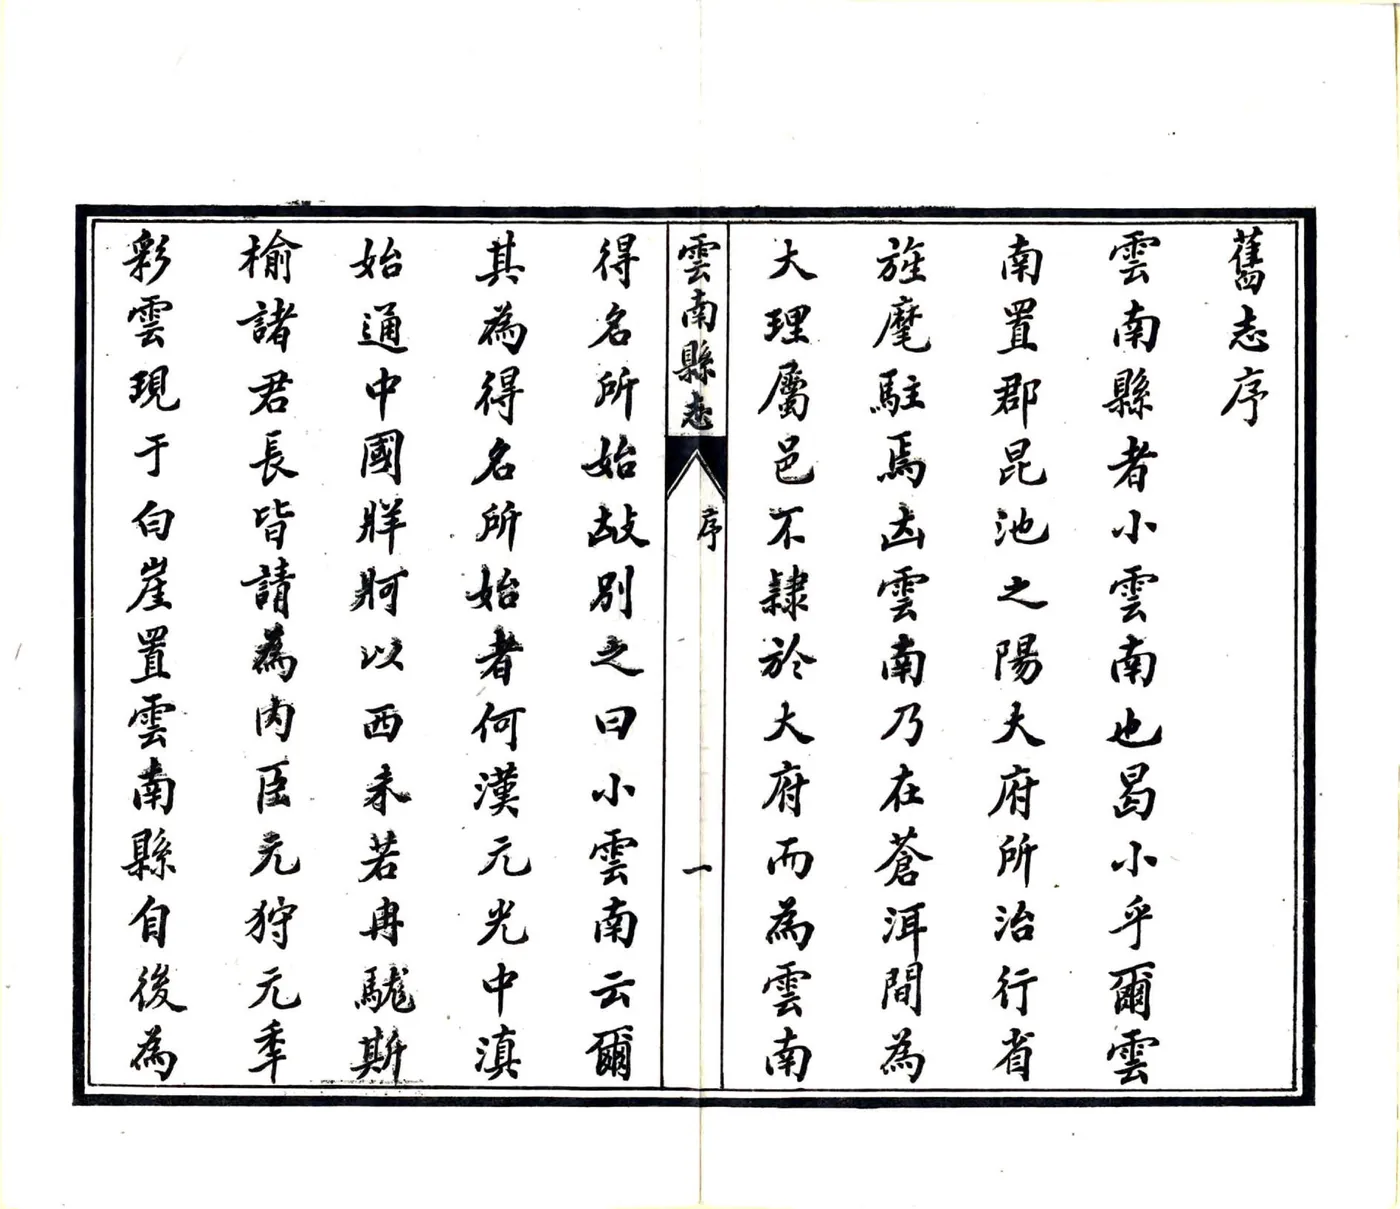 舊志序
雲南縣者小雲南也曷小乎爾雲
南置郡昆池之陽大府所治行省
旌麾駐焉㘭雲南乃在蒼洱間為
大理屬邑不隸於大府而為雲南
雲南縣志
序
一
得名所始故別之曰小雲南云爾
其為得名所始者何漢元光中滇
始通中國牂牁以西未若冉駹斯
榆諸君長皆請為內臣元狩元年
彩雲現于白崖置雲南縣自後為